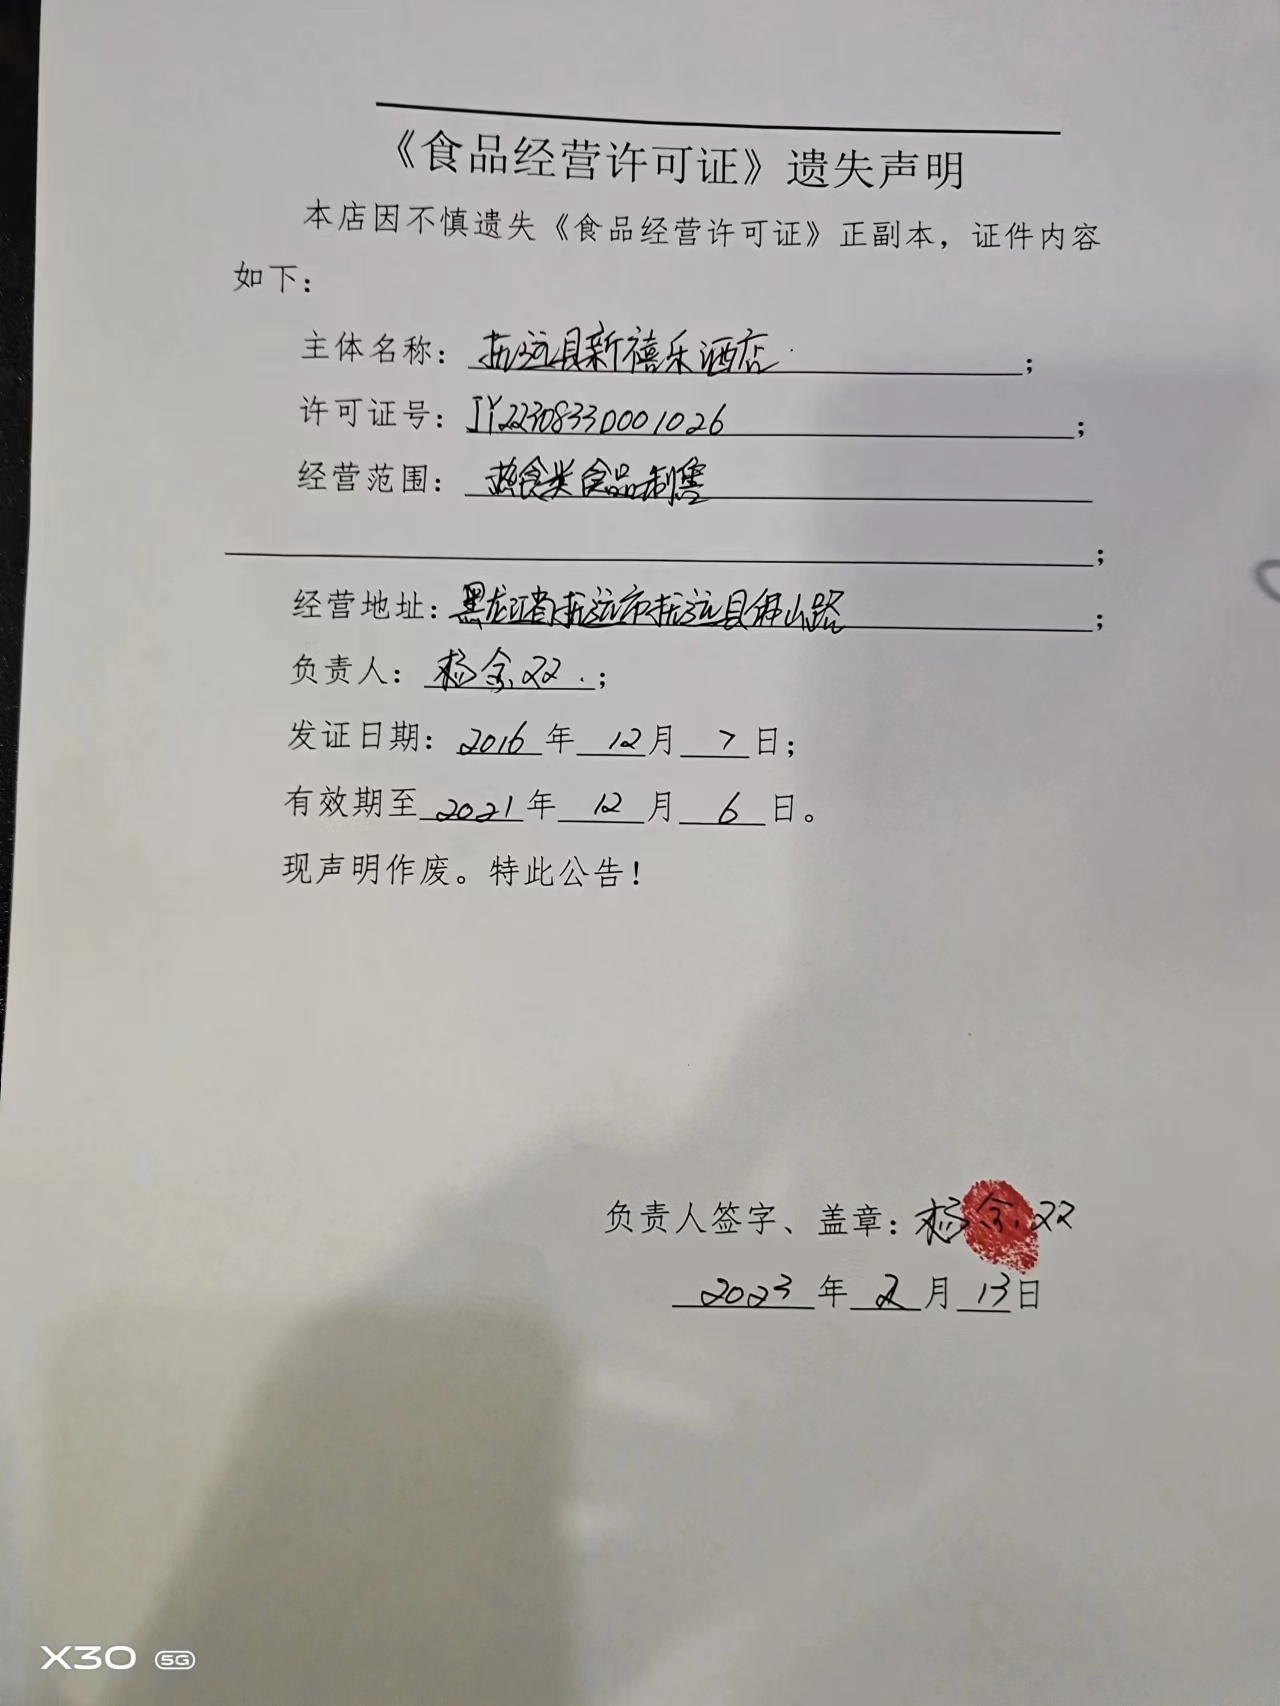 《食品经营许可证》遗失声明
本店因不慎遗失《食品经营许可证》正副本，证件内容
如下：
主体名称：抚远县新禧乐酒店；
许可证号：JY22308330001026；
经营范围：热食类食品制售
；
经营地址：黑龙江省抚远市抚远县佛山路；
负责人：杨金双；
发证日期：2016年12月7日；
有效期至2021年12月6日。
现声明作废。特此公告！
负责人签字、盖章：杨金双
2023年2月13日
X30 5G